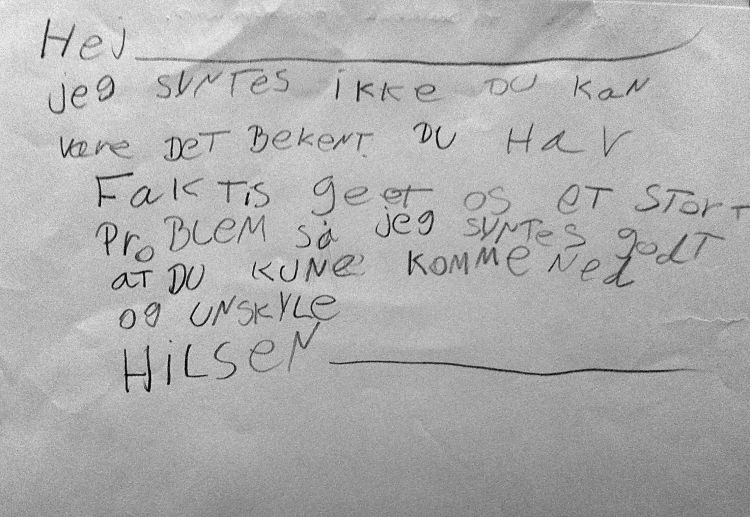 Hej
jeg SYNTES ikke DU KaN
være DET BEKENT. DU HaV
FaKTis geet OS eT STORT
PROBLEM så jeg SYNTES godT
aT DU KUNE KOMME Ned
og UNSKYLE
HiLSeN